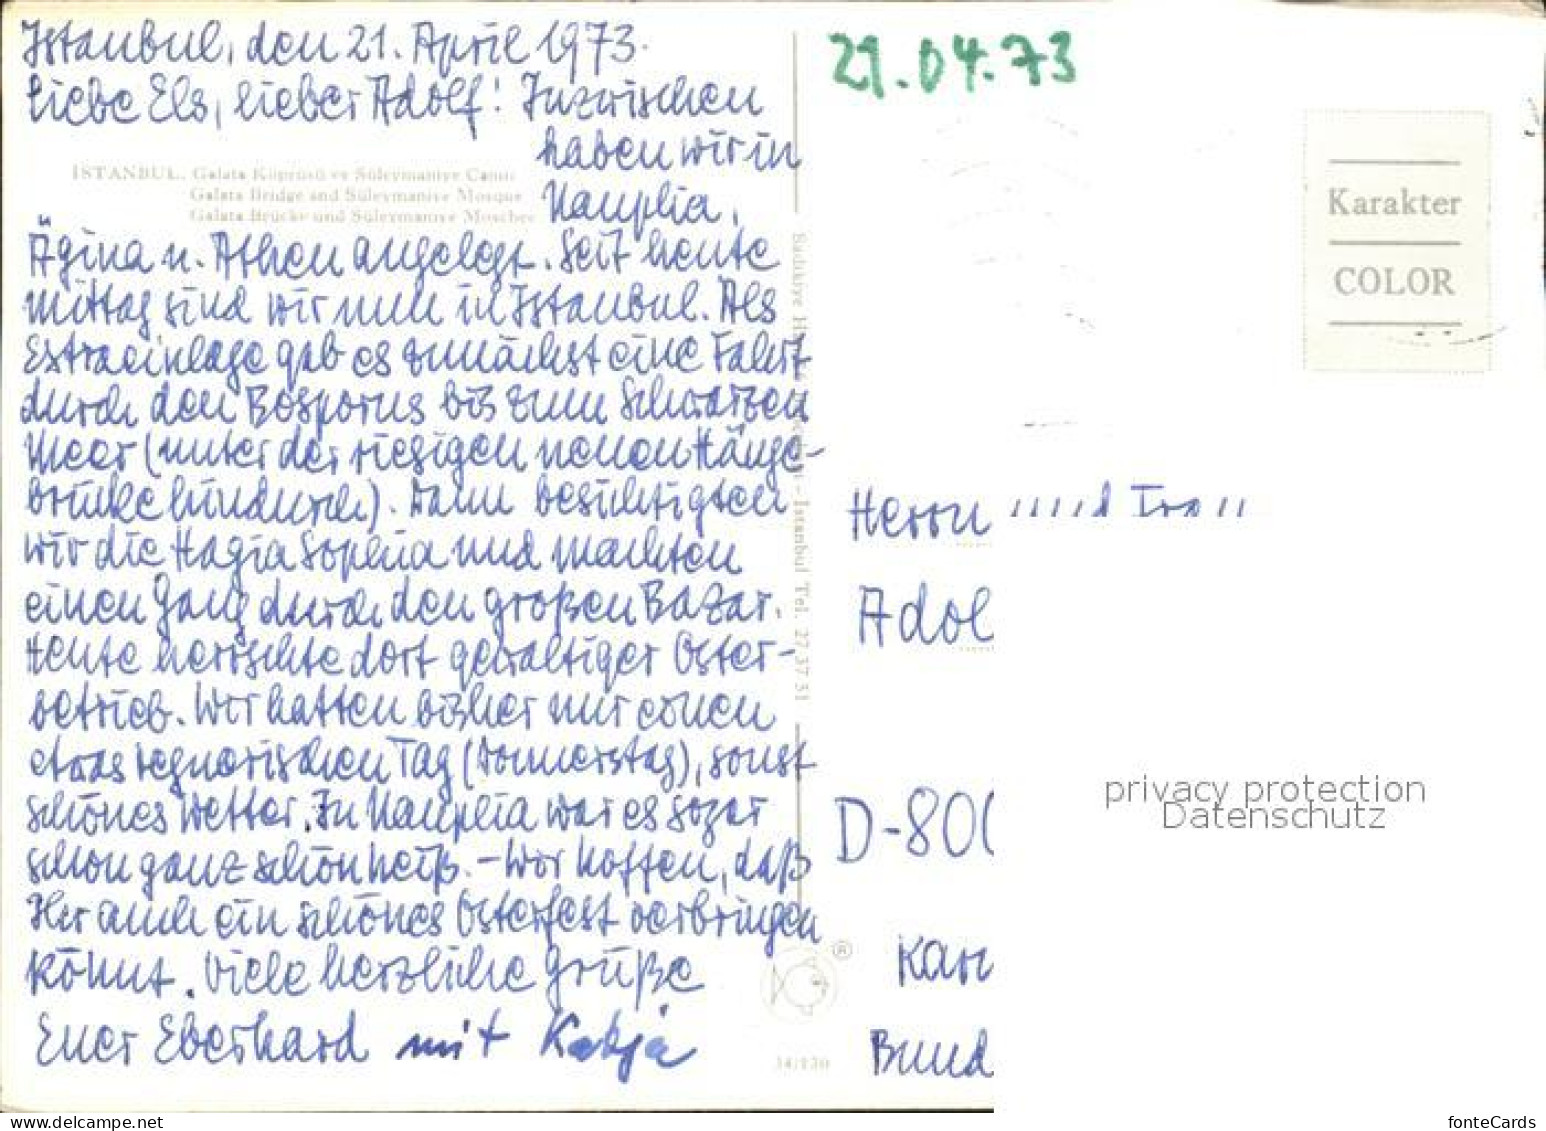 Istanbul, den 21. April 1973.
Liebe Els, lieber Adolf! Inzwischen
haben wir in
Nauplia,
Ägina u. Athen angelegt. Seit heute
mittag sind wir nun in Istanbul. Als
Extraeinlage gab es zunächst eine Fahrt
durch den Bosporus bis zum Schwarzen
Meer (unter der riesigen neuen Hänge-
brücke hindurch). Dann besichtigten
wir die Hagia Sophia und machten
einen Gang durch den großen Bazar.
Heute herrschte dort gewaltiger Oster-
betrieb. Wir hatten bisher nur einen
etwas regnerischen Tag (Donnerstag), sonst
schönes Wetter. In Nauplia war es sogar
schon ganz schön heiß. - Wir hoffen, daß
Ihr auch ein schönes Osterfest verbringen
könnt. Viele herzliche Grüße
Euer Eberhard mit Katja
ISTANBUL. Galata Köprüsü ve Süleymaniye Camii
Galata Bridge and Süleymaniye Mosque
Galata Brücke und Süleymaniye Moschee
- Istanbul Tel. 27 37 51
®
34/130
21.04.73
Karakter
COLOR
Herrn und Frau
Adol
D-800
Bund
privacy protection
Datenschutz
www.delcampe.net
fonteCards